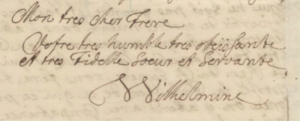 Mon tres cher frere
Votre tres humble tres obeissante
et tres fidelle soeur et servante
Wilhelmine